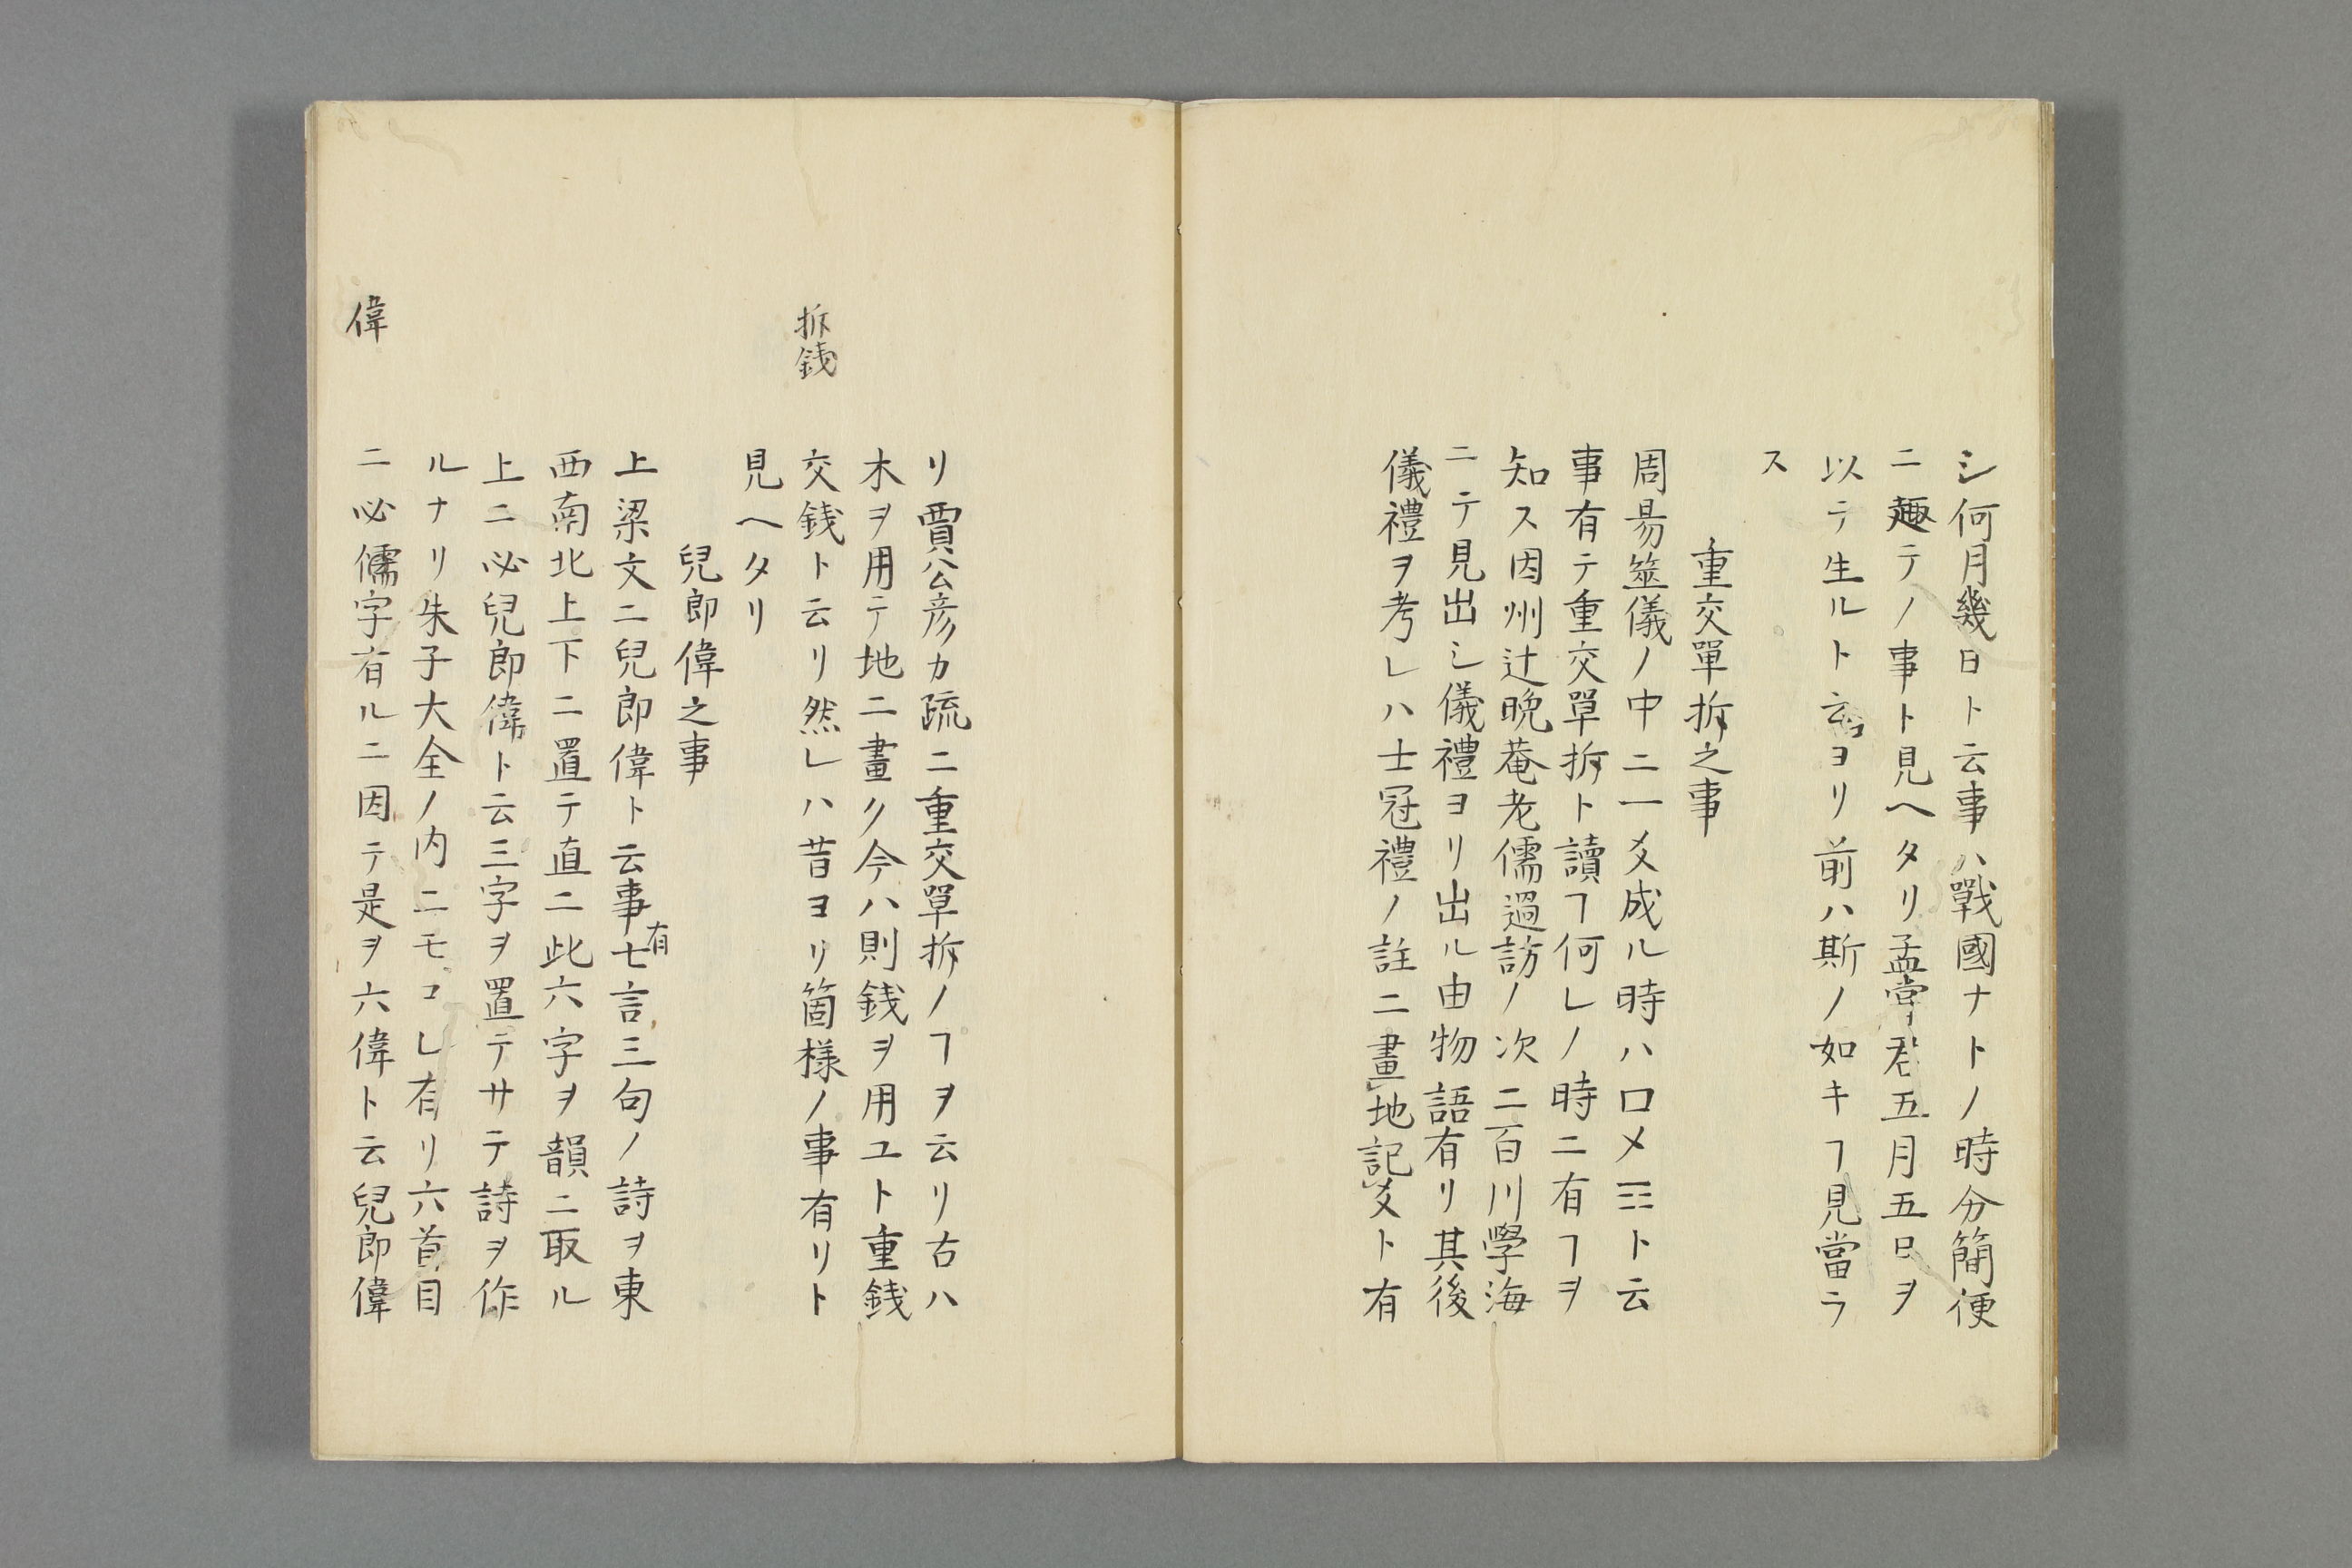 シ何月幾日ト云事ハ戰國ナトノ時分簡便
ニ趣テノ事ト見ヘタリ孟嘗君五月五日ヲ
以テ生ルト云ヨリ前ハ斯ノ如キヿ見當ラ
ス
重交單拆之事
周昜筮儀ノ中ニ一爻成ル時ハ口メ☳ト云
事有テ重交單拆ト讀ヿ何レノ時ニ有ヿヲ
知ス因州辻晩菴老儒過訪ノ次ニ百川學海
ニテ見出シ儀禮ヨリ出ル由物語有リ其後
儀禮ヲ考レハ士冠禮ノ註ニ畫地記爻ト有
リ賈公彦カ疏ニ重交單拆ノヿヲ云リ古ハ
木ヲ用テ地ニ畫ク今ハ則銭ヲ用ユト重銭
拆銭
交銭ト云リ然レハ昔ヨリ箇様ノ事有リト
見ヘタリ
兒郎偉之事
上梁文ニ兒郎偉ト云事有七言三句ノ詩ヲ東
西南北上下ニ置テ直ニ此六字ヲ韻ニ取ル
上ニ必兒郎偉ト云三字ヲ置テサテ詩ヲ作
ルナリ朱子大全ノ内ニモコレ有リ六首目
偉
ニ必儒字有ルニ因テ是ヲ六偉ト云兒郎偉